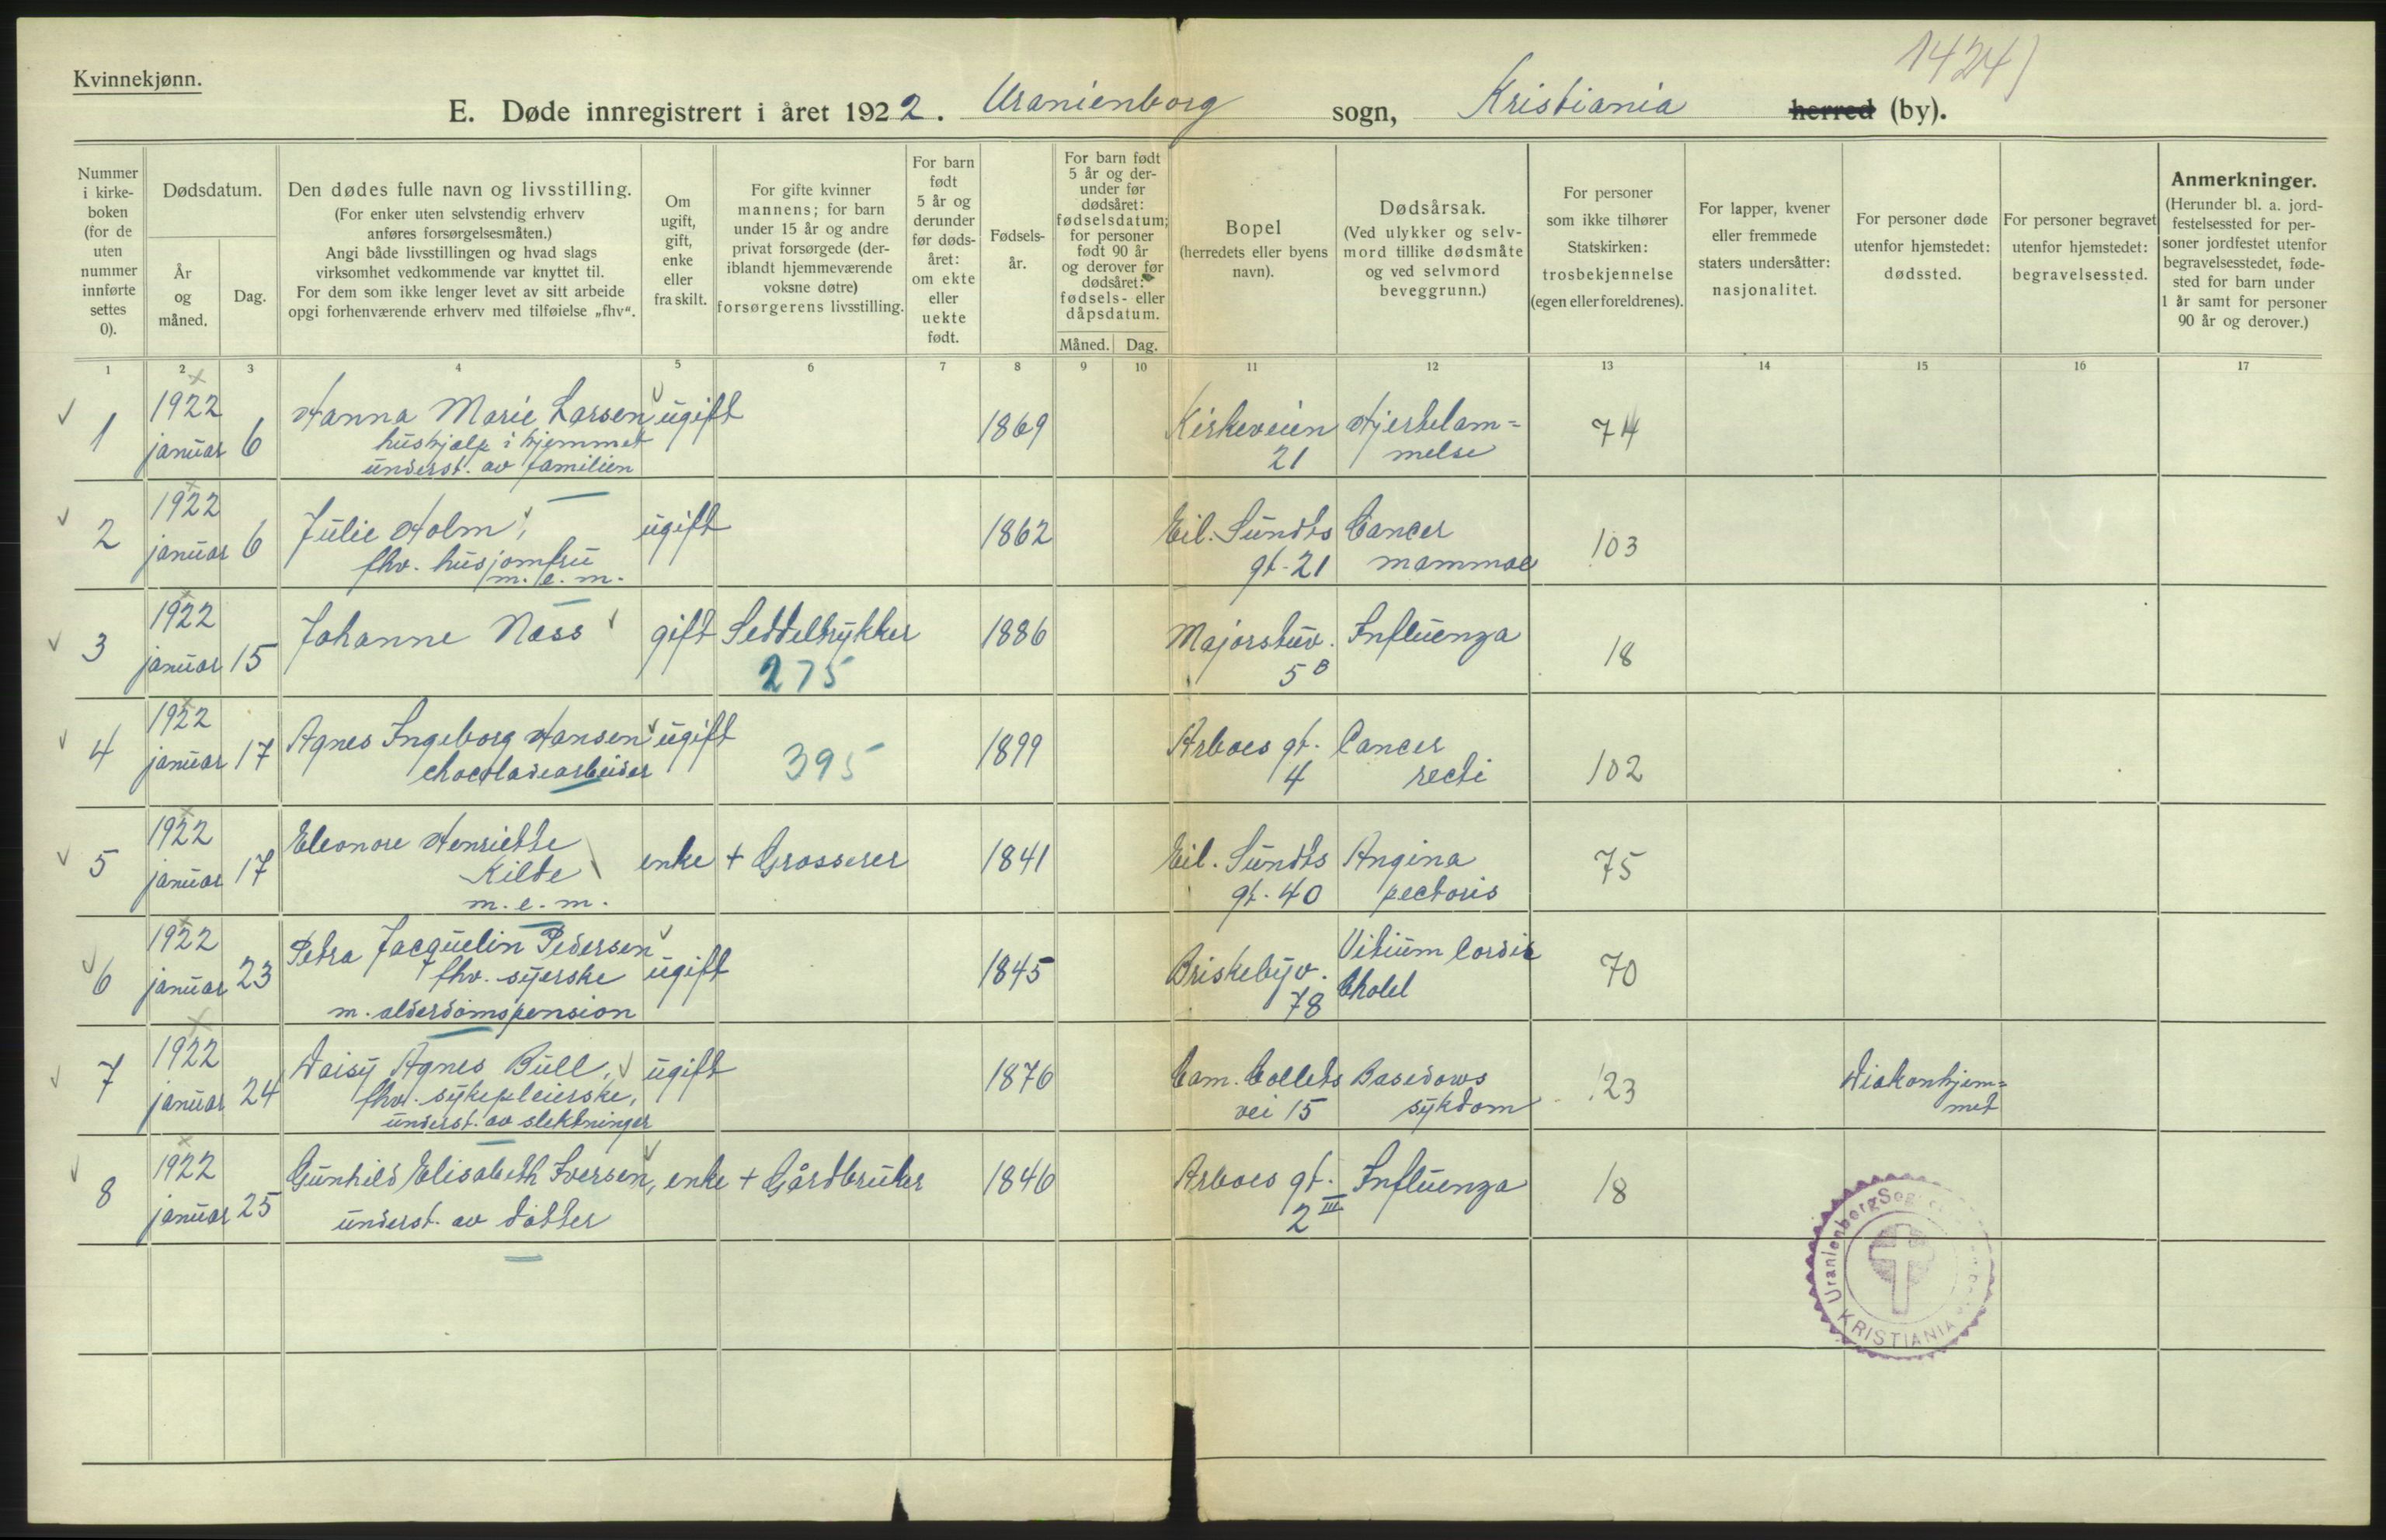 1424
Kvinnekjønn.
E. Døde innregistrert i året 1922. Uranienborg sogn, Kristiania herred (by).
Nummer i kirke-boken (for de uten nummer innførte settes 0).
Dødsdatum.
År og måned.
Dag.
Den dødes fulle navn og livsstilling.
(For enker uten selvstendig erhverv
anføres forsørgelsesmåten.)
Angi både livsstillingen og hvad slags
virksomhet vedkommende var knyttet til.
For dem som ikke lenger levet av sitt arbeide
opgi forhenværende erhverv med tilføielse „fhv“.
Om ugift, gift, enke eller fraskilt.
For gifte kvinner
mannens; for barn
under 15 år og andre
privat forsørgede (der-
iblandt hjemmeværende
voksne døtre)
forsørgerens livsstilling.
For barn
født
5 år og
derunder
før døds-
året:
om ekte
eller
uekte
født.
Fødsels-
år.
For barn født
5 år og der-
under før
dødsåret:
fødselsdatum;
for personer
født 90 år
og derover før
dødsåret:
fødsels- eller
dåpsdatum.
Måned. Dag.
Bopel
(herredets eller byens
navn).
Dødsårsak.
(Ved ulykker og selv-
mord tillike dødsmåte
og ved selvmord
beveggrunn.)
For personer
som ikke tilhører
Statskirken:
trosbekjennelse
(egen eller foreldrenes).
For lapper, kvener
eller fremmede
staters undersåtter:
nasjonalitet.
For personer døde
utenfor hjemstedet:
dødssted.
For personer begravet
utenfor hjemstedet:
begravelsessted.
Anmerkninger.
(Herunder bl. a. jord-
festelsessted for per-
soner jordfestet utenfor
begravelsesstedet, føde-
sted for barn under
1 år samt for personer
90 år og derover.)
1 2 3 4 5 6 7 8 9 10 11 12 13 14 15 16 17
1 1922 januar 6 Hanna Marie Larsen ugift 1869 Kirkeveien 21 Hjertelam=melse 74
hushjælp i hjemmet
underst. av familien
2 1922 januar 6 Julie Holm, ugift 1862 Eil. Sundts gt. 21 Cancer mammae 103
fhv. husjomfru
m. e. m.
3 1922 januar 15 Johanne Næss gift Seddeltrykker 1886 Majorstuv. 5B Influenza 18
275
4 1922 januar 17 Agnes Ingeborg Hansen ugift 1899 Arboes gt. 4 Cancer recti 102
chocoladearbeider 395
5 1922 januar 17 Eleonore Henriette enke + Grosserer 1841 Eil. Sundts gt. 40 Angina pectoris 75
Kilde
m. e. m.
6 1922 januar 23 Petra Jacquelin Pedersen ugift 1845 Briskebyv. 78 Vitium Cordis 70
fhv. syerske
m. alderdomspension
7 1922 januar 24 Daisy Agnes Bull, ugift 1876 Cam. Colletts vei 15 Basedows sykdom 123 Diakonhjem=met
fhv. sykepleierske,
underst. av slektninger
8 1922 januar 25 Gunhild Elisabeth Iversen, enke + Gårdbruker 1846 Arboes gt. 2 III Influenza 18
underst. av datter
Uranienborg
KRISTIANIA